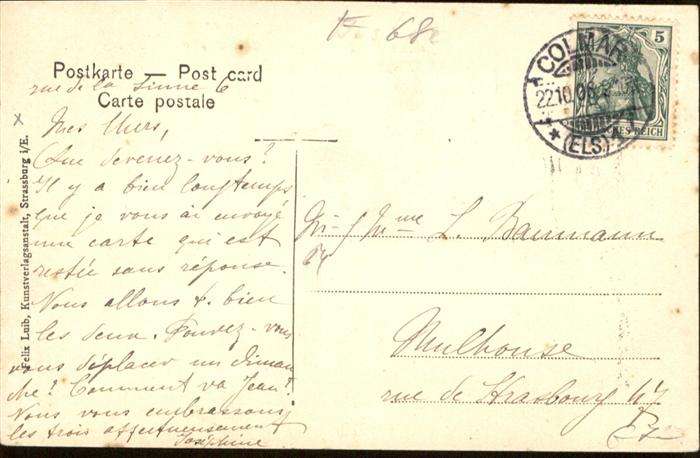 68
5
COLMAR
22.10.06
*(ELS)*
REICH
Postkarte — Post card
Carte postale
rue de la Sinne 6
Mes chers,
Que devenez-vous?
Il y a bien longtemps
que je vous ai envoyé
une carte qui est
restée sans réponse.
Nous allons t. bien
les deux. Pouvez-vous
vous déplacer un diman
che? Comment va Jean?
Nous vous embrassons
les trois affectueusement
Joséphine
Felix Luib, Kunstverlagsanstalt, Strassburg i/E.
Mme L. Baumann
Mulhouse
rue de Strasbourg 47